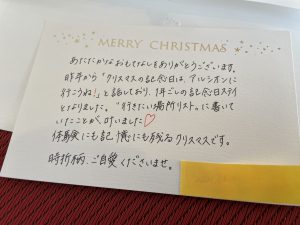 MERRY CHRISTMAS
あたたかなおもてなしをありがとうございます。
昨年から"クリスマスの記念日は、アルシオンに
行こうね!"と話しており、1年ごしの記念日ステイ
となりました。"行きたい場所リスト"に書いて
いたことが叶いました♡
体験にも記憶にも残るクリスマスです。
時折柄、ご自愛くださいませ。